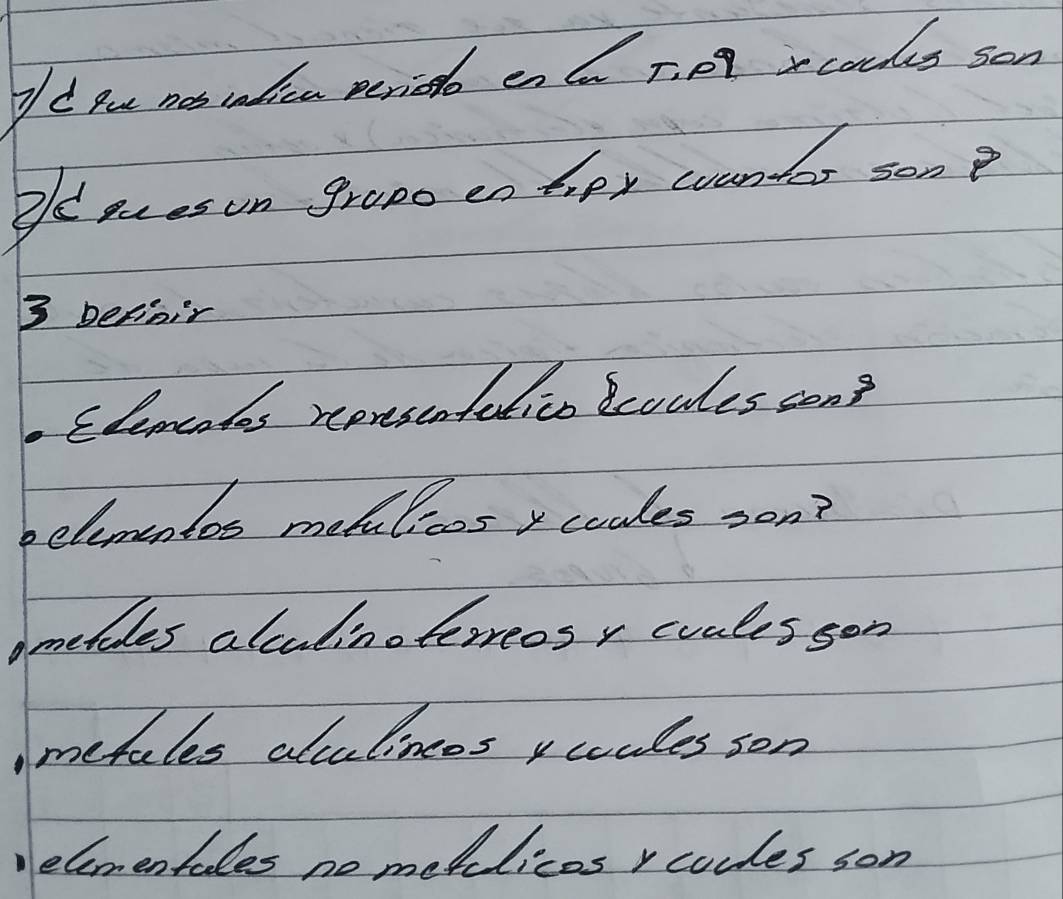 1) ¿ que nos indica periodo en la T.P? y cuales son
2) ¿ que es un grupo en t.p y cuantos son?
3 Definir
• Elementos representatico ¿cuales son?
• elementos metalicos y cuales son?
• metales alcalinoterreos y cuales son
• metales alcalineos y cuales son
• elementales no metalicos y cuales son